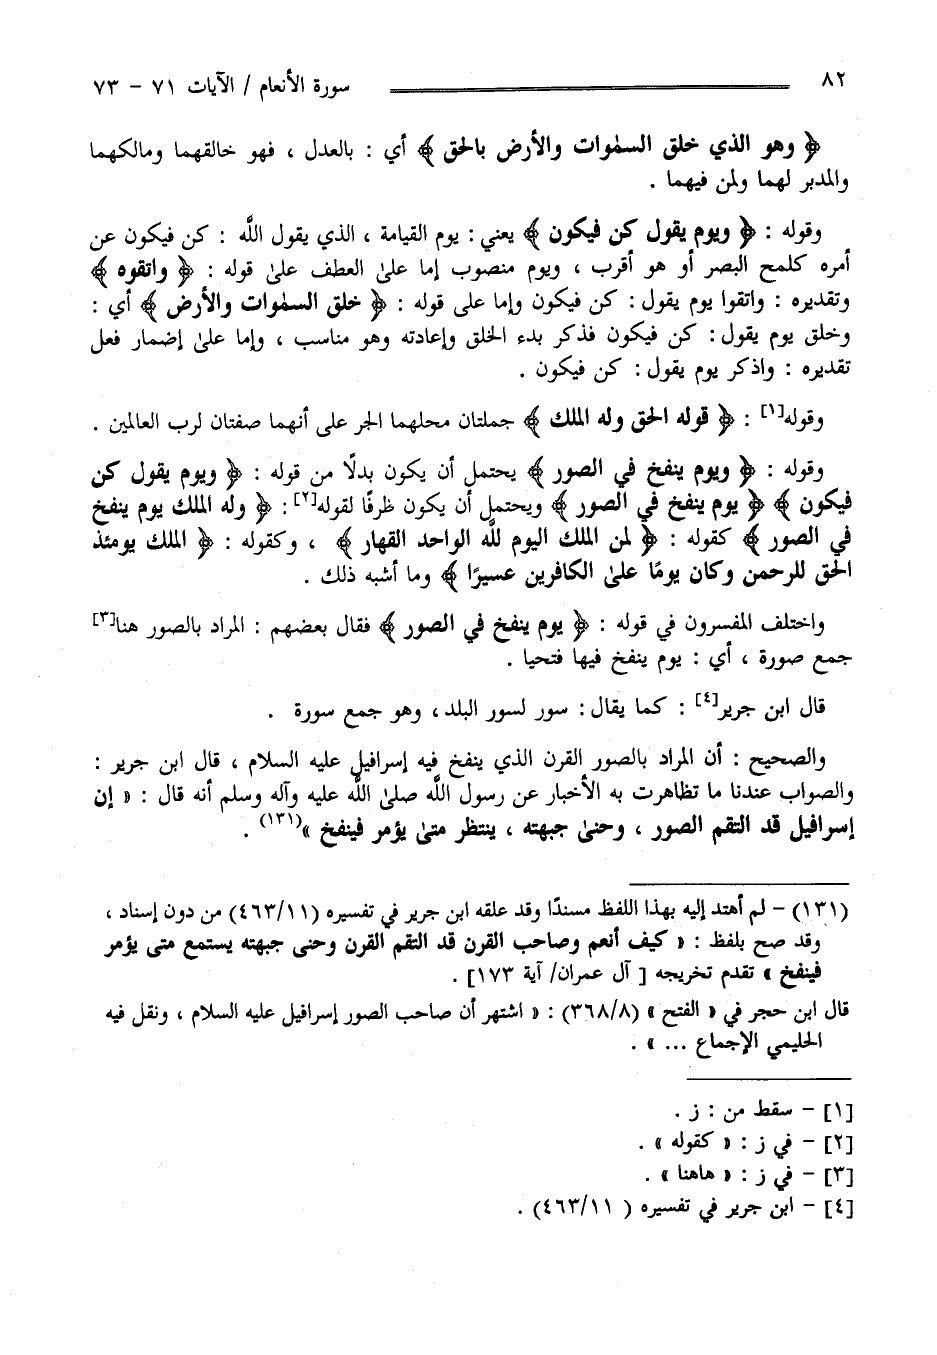 ٨٢ سورة الأنعام / الآيات ٧١ - ٧٣
﴿ وهو الذي خلق السمٰوات والأرض بالحق ﴾ أي : بالعدل ، فهو خالقهما ومالكهما
والمدبر لهما ولمن فيهما .
وقوله : ﴿ ويوم يقول كن فيكون ﴾ يعني : يوم القيامة ، الذي يقول اللَّه : كن فيكون عن
أمره كلمح البصر أو هو أقرب ، ويوم منصوب إما علىٰ العطف علىٰ قوله : ﴿ واتقوه ﴾
وتقديره : واتقوا يوم يقول : كن فيكون وإما على قوله : ﴿ خلق السمٰوات والأرض ﴾ أي :
وخلق يوم يقول : كن فيكون فذكر بدء الخلق وإعادته وهو مناسب ، وإما علىٰ إضمار فعل
تقديره : واذكر يوم يقول : كن فيكون .
وقوله[١] : ﴿ قوله الحق وله الملك ﴾ جملتان محلهما الجر على أنهما صفتان لرب العالمين .
وقوله : ﴿ ويوم ينفخ في الصور ﴾ يحتمل أن يكون بدلًا من قوله : ﴿ ويوم يقول كن
فيكون ﴾ ﴿ يوم ينفخ في الصور ﴾ ويحتمل أن يكون ظرفًا لقوله[٢] : ﴿ وله الملك يوم ينفخ
في الصور ﴾ كقوله : ﴿ لمن الملك اليوم للَّه الواحد القهار ﴾ ، وكقوله : ﴿ الملك يومئذ
الحق للرحمن وكان يومًا علىٰ الكافرين عسيرًا ﴾ وما أشبه ذلك .
واختلف المفسرون في قوله : ﴿ يوم ينفخ في الصور ﴾ فقال بعضهم : المراد بالصور هنا[٣]
جمع صورة ، أي : يوم ينفخ فيها فتحيا .
قال ابن جرير[٤] : كما يقال : سور لسور البلد ، وهو جمع سورة .
والصحيح : أن المراد بالصور القرن الذي ينفخ فيه إسرافيل عليه السلام ، قال ابن جرير :
والصواب عندنا ما تظاهرت به الأخبار عن رسول اللَّه صلىٰ اللَّه عليه وآله وسلم أنه قال : « إن
إسرافيل قد التقم الصور ، وحنىٰ جبهته ، ينتظر متىٰ يؤمر فينفخ »(١٣١) .
(١٣١) - لم أهتد إليه بهذا اللفظ مسندًا وقد علقه ابن جرير في تفسيره (٤٦٣/١١) من دون إسناد ،
وقد صح بلفظ : « كيف أنعم وصاحب القرن قد التقم القرن وحنى جبهته يستمع متى يؤمر
فينفخ » تقدم تخريجه [ آل عمران/ آية ١٧٣] .
قال ابن حجر في « الفتح » (٣٦٨/٨) : « اشتهر أن صاحب الصور إسرافيل عليه السلام ، ونقل فيه
الحليمي الإجماع ... » .
[١] - سقط من : ز .
[٢] - في ز : « كقوله » .
[٣] - في ز : « هاهنا » .
[٤] - ابن جرير في تفسيره ( ٤٦٣/١١) .